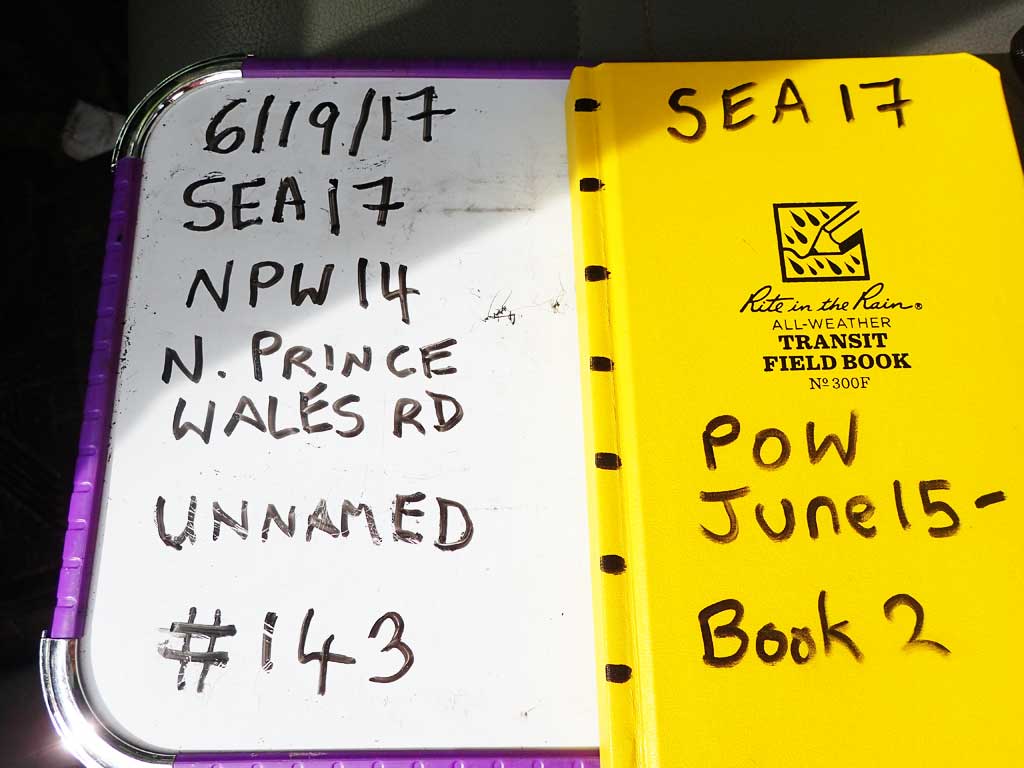 6/19/17
SEA17
NPW14
N. PRINCE
WALES RD
UNNAMED
#143
SEA 17
Rite in the Rain®
ALL-WEATHER
TRANSIT
FIELD BOOK
Nº 300F
POW
June 15-
Book 2